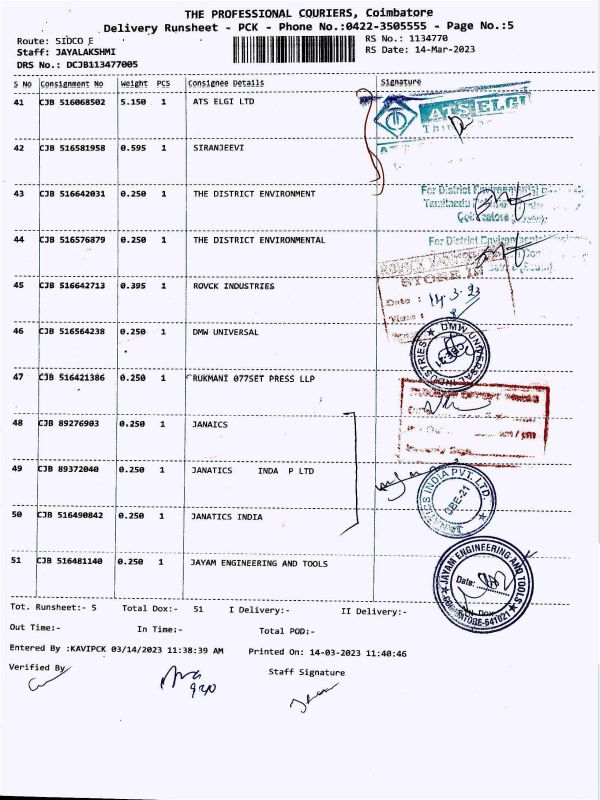 THE PROFESSIONAL COURIERS, Coimbatore
Delivery Runsheet - PCK - Phone No.:0422-3505555 - Page No.:5
Route: SIDCO E
RS No.: 1134770
Staff: JAYALAKSHMI
RS Date: 14-Mar-2023
DRS No.: DCJB113477005
S No Consignment No Weight PCS Consignee Details Signature
41 CJB 516068502 5.150 1 ATS ELGI LTD
ATS ELGI
42 CJB 516581958 0.595 1 SIRANJEEVI
43 CJB 516642031 0.250 1 THE DISTRICT ENVIRONMENT
For District
44 CJB 516576879 0.250 1 THE DISTRICT ENVIRONMENTAL
For District
45 CJB 516642713 0.395 1 ROVCK INDUSTRIES
STORE IN
Date : 14.3.23
Time :
46 CJB 516564238 0.250 1 DMW UNIVERSAL
DMW UNIVERSAL INDUSTRIES
47 CJB 516421386 0.250 1 RUKMANI 077SET PRESS LLP
48 CJB 89276903 0.250 1 JANAICS
49 CJB 89372040 0.250 1 JANATICS INDA P LTD
JANATICS INDIA PVT. LTD.
50 CJB 516490842 0.250 1 JANATICS INDIA
51 CJB 516481140 0.250 1 JAYAM ENGINEERING AND TOOLS
JAYAM ENGINEERING AND TOOLS
Date:
Tot. Runsheet:- 5 Total Dox:- 51 I Delivery:- II Delivery:-
Out Time:- In Time:- Total POD:-
Entered By :KAVIPCK 03/14/2023 11:38:39 AM Printed On: 14-03-2023 11:40:46
Verified By Staff Signature